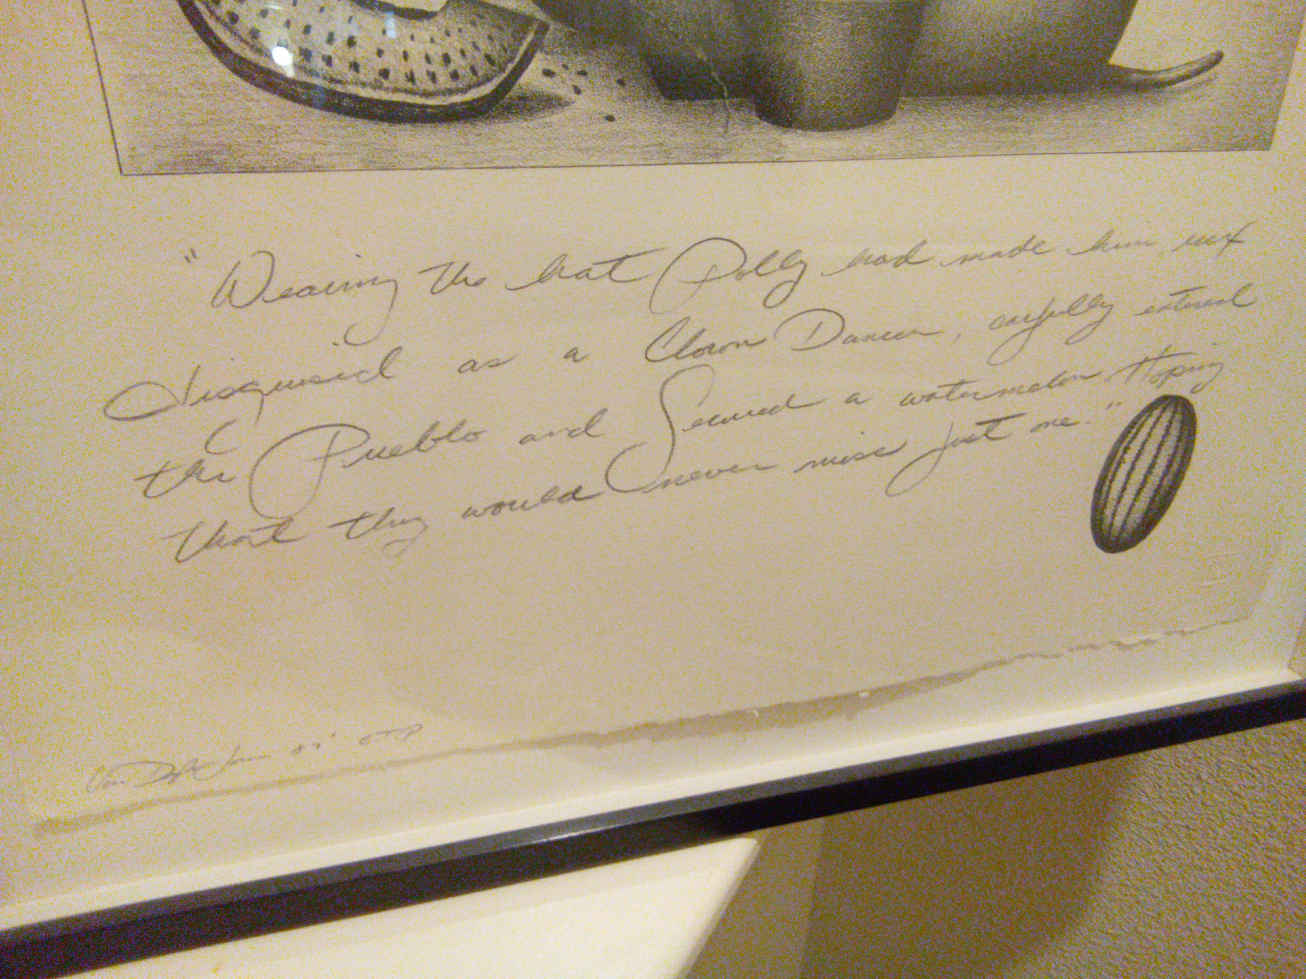 "Wearing the hat Polly had made him
disguised as a Clown Dancer, carfully entered
the Pueblo and Secured a watermelon. Hoping
that they would never miss just one."